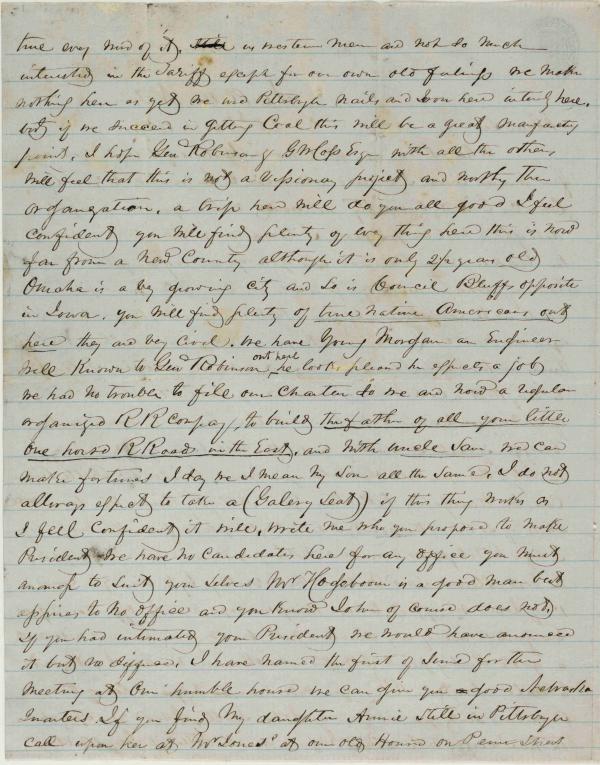 true every word of it, we western men are not so much
interested in the Tariff except for our own old feelings we make
nothing here as yet we use Pittsbgh nails and Iron here intirely here,
but if we succeed in getting Coal this will be a great manfactg
point, I hope Genl Robinson & G W Cass Esqr with all the others
will feel that this is not a Vissionay project and worthy their
organization, a trip here will do you all good I feel
confident you will find plenty of evry thing here this is now
far from a New County although it is only 2½ years old
Omaha is a big growing city and so is Council Bluffs opposite
in Iowa, you will find plenty of true native Americans out
here they are vey Civil. we have Young Morgan an Engineer
well Known to Genl Robinson, out here he looks pleasd he expects a job
we had no trouble to file our Charter so we are now a regular
organized R R Compay, to build the father of all your little
One horse R Roads in the East, and with Uncle Sam, we can
make fortunes I say we I mean my Son all the same, I do not
allways expect to take a (Galery Seat) if this thing works as
I feel Confident it will, write me who you propose to make
President we have no Candidates here for any office you must
arrange to suit your selves Mr Hogeboom is a good man but
aspires to no office and you know John of course does not,
If you had intimated your President we would have anounced
it but no diffence, I have named the first of June for the
meeting at our humble house we can give you good Nebraska
Quarters If you find my daughter Annie still in Pittsbgh
call upon her at Mr Jones' at our old House on Penn Street